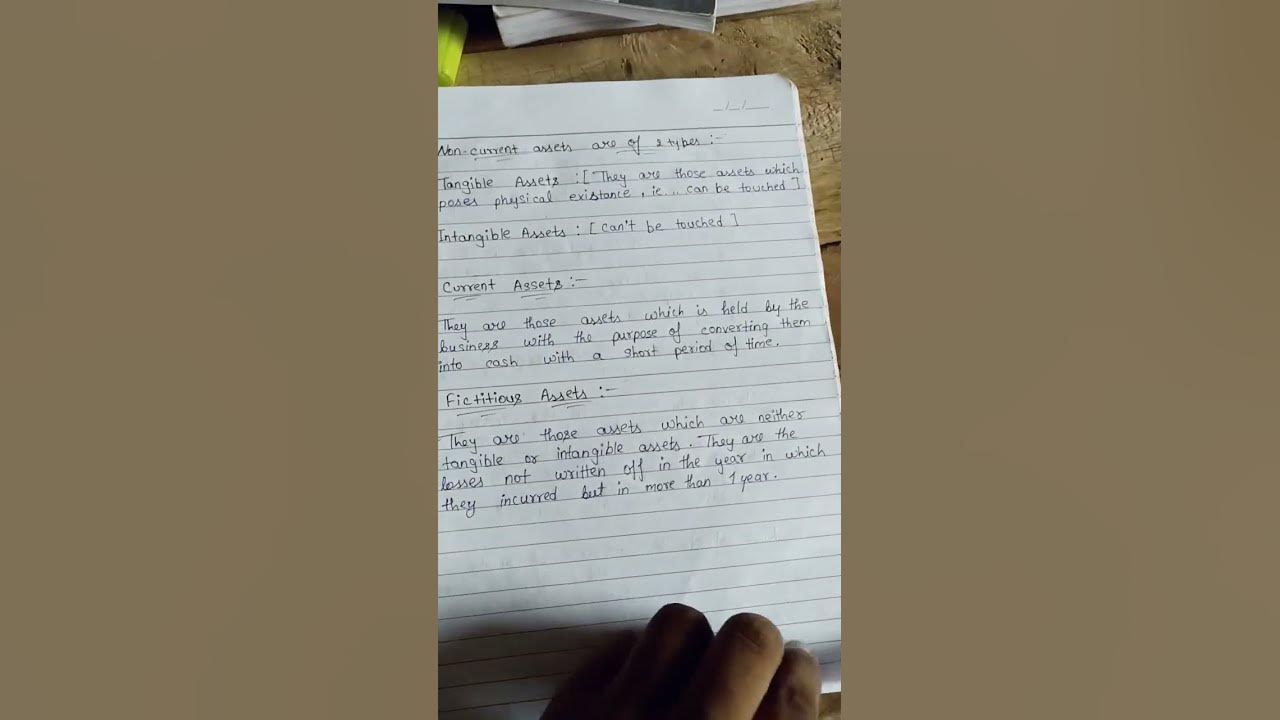 _/_/__
Non-current assets are of 2 types :-
Tangible Assets : [ They are those assets which
poses physical existance, ie... can be touched ]
Intangible Assets : [ can't be touched ]
Current Assets :-
They are those assets which is held by the
business with the purpose of converting them
into cash with a short period of time.
Fictitious Assets :-
They are those assets which are neither
tangible or intangible assets. They are the
losses not written off in the year in which
they incurred but in more than 1 year.